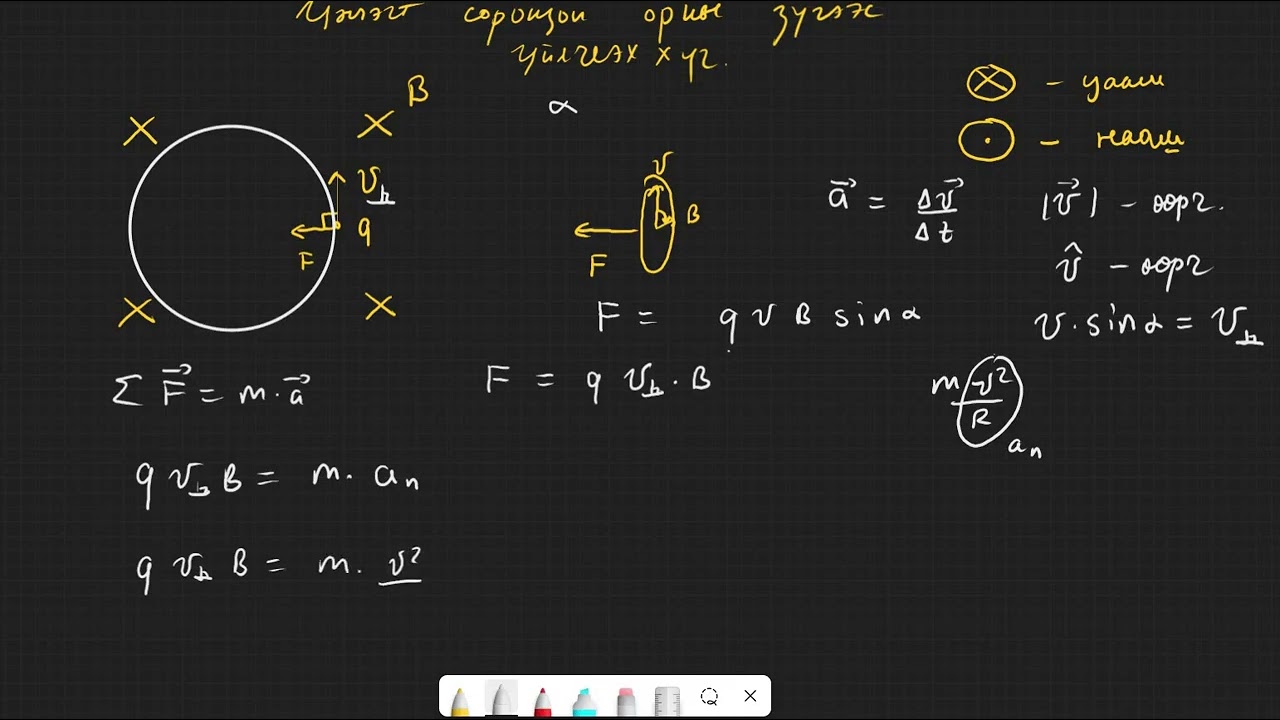 Цэнэгт соронзон орны зүгээс
үйлчлэх хүч.
B
α
⊗ - цааш
⊙ - нааш
v⊥
q
F
v
B
F
a⃗ = Δv⃗/Δt
|v⃗| - өөрч.
v̂ - өөрч
F = q v B sinα
v·sinα = v⊥
Σ F⃗ = m·a⃗
F = q v⊥·B
m v²/R
aₙ
q v⊥ B = m·aₙ
q v⊥ B = m· v²